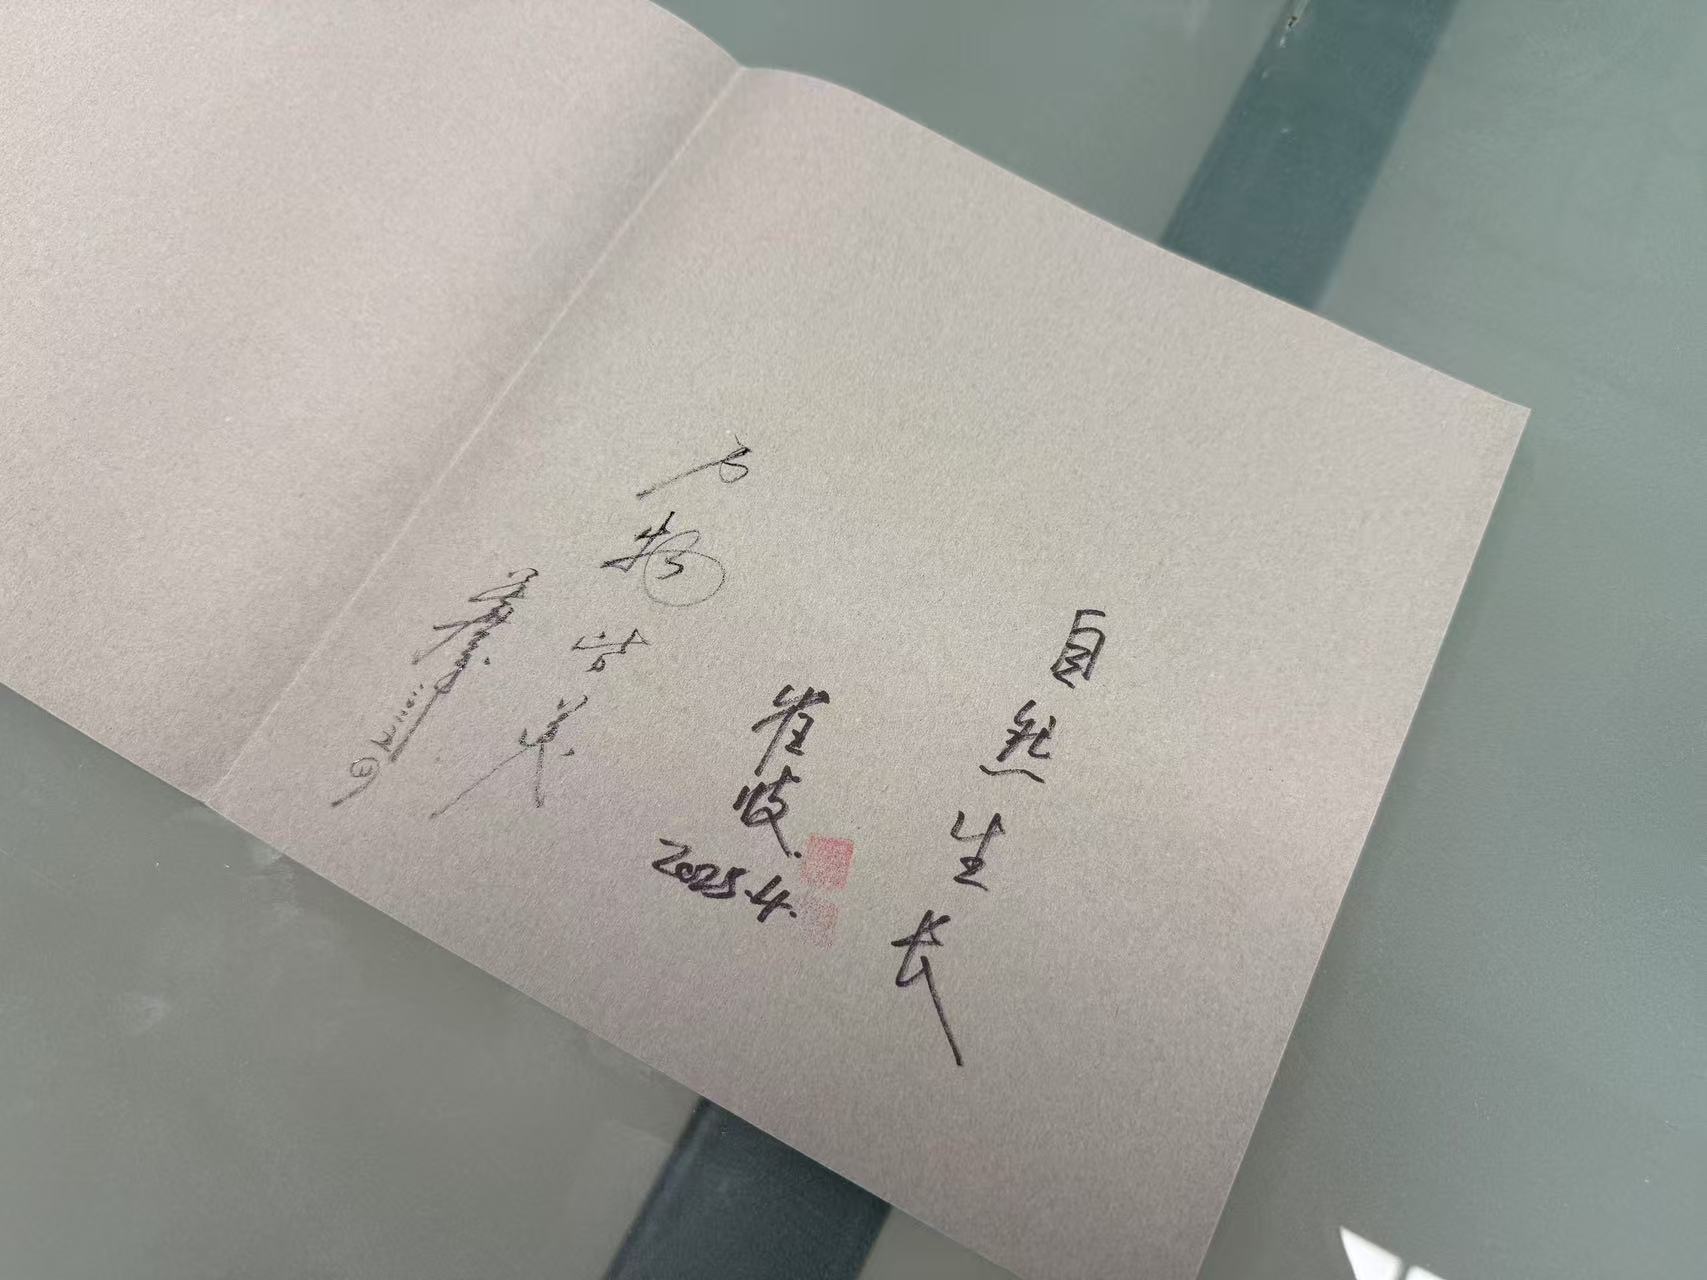 自然生长
崔岐
2025.4.
万物皆美